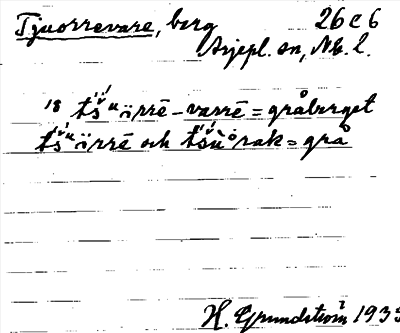 Tjuorrevare, berg 26 c 6
Arjepl. sn, Nb. l.
18 t́š́ᵘörrē-varrē = gråberget
t́š́ᵘörrē och t́š́ùᵒrak = grå
H. Grundström 1935